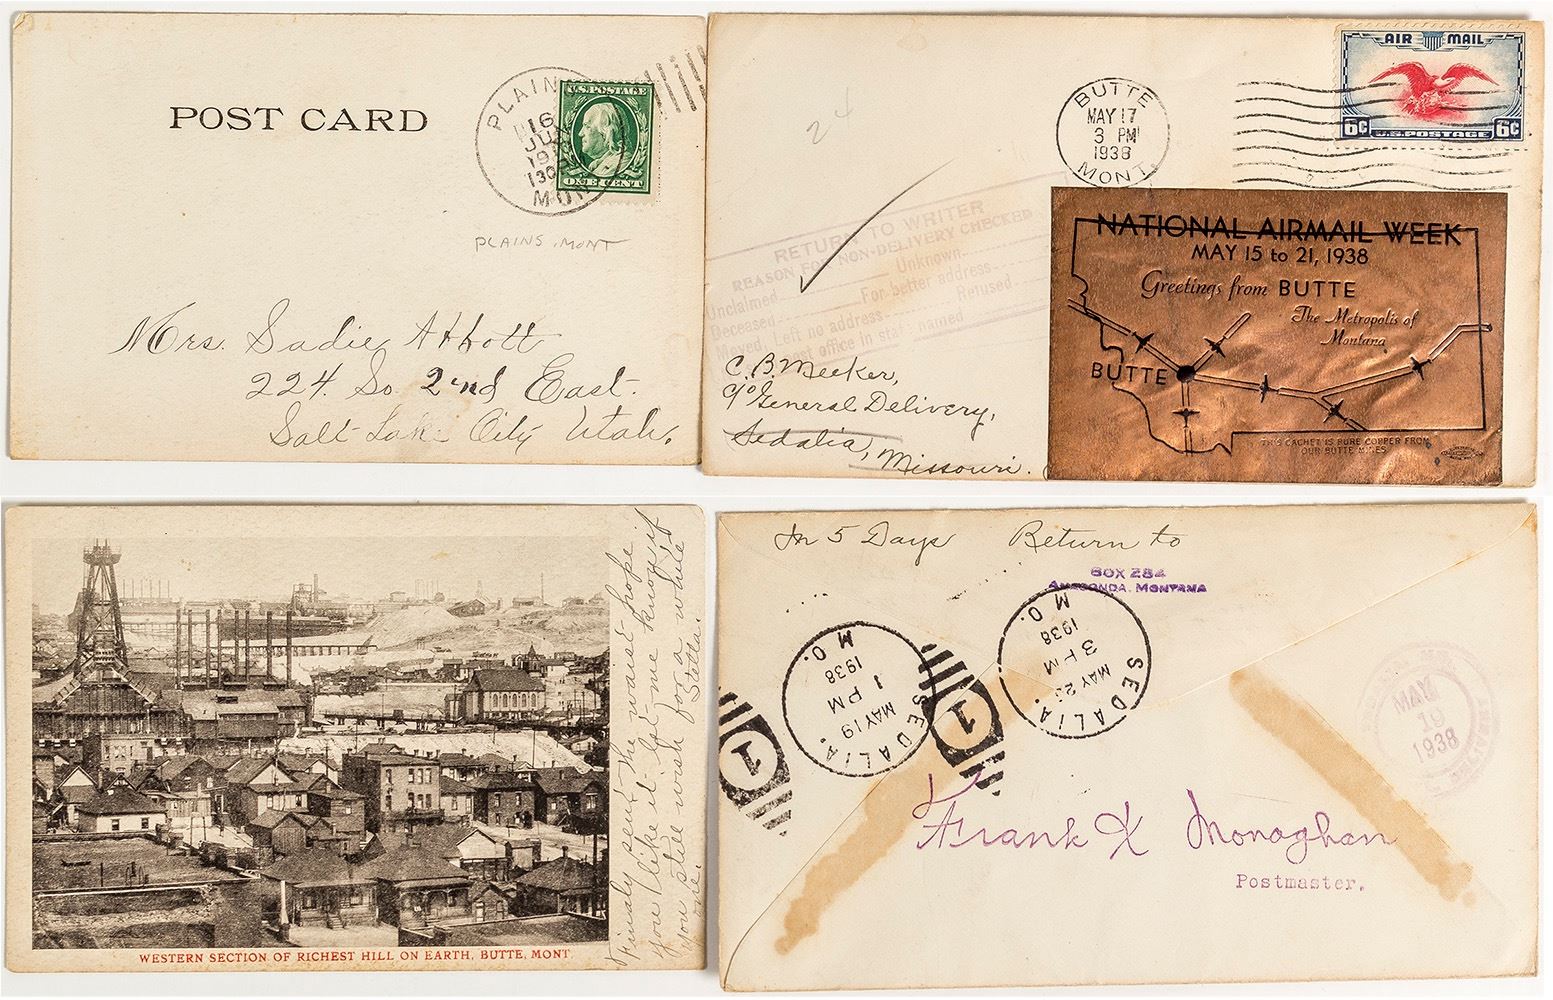 POST CARD
PLAINS
16
JUL
U.S. POSTAGE
ONE CENT
PLAINS, MONT
Mrs. Sadie Abbott
224. So. 2nd East.
Salt Lake City Utah.
24
BUTTE
MAY 17
3 PM
1938
MONT.
AIR MAIL
6¢ U.S. POSTAGE 6¢
RETURN TO WRITER
REASON FOR NON-DELIVERY CHECKED
Unclaimed Unknown
Deceased For better address
Moved, Left no address Refused
post office in state named
C. B. Meeker,
c/o General Delivery,
Sedalia,
Missouri.
NATIONAL AIRMAIL WEEK
MAY 15 to 21, 1938
Greetings from BUTTE
The Metropolis of
Montana
BUTTE
THIS CACHET IS PURE COPPER FROM
OUR BUTTE MINES
WESTERN SECTION OF RICHEST HILL ON EARTH, BUTTE, MONT.
Finaly sent the waist hope
you like it let me know if
you still wish for a while
one. Stella.
In 5 Days Return to
BOX 284
ANACONDA, MONTANA
SEDALIA.
MAY 19
1 PM
1938
MO.
1
SEDALIA.
MAY 23
3 PM
1938
MO.
1
MAY
19
1938
Frank X Monaghan
Postmaster.